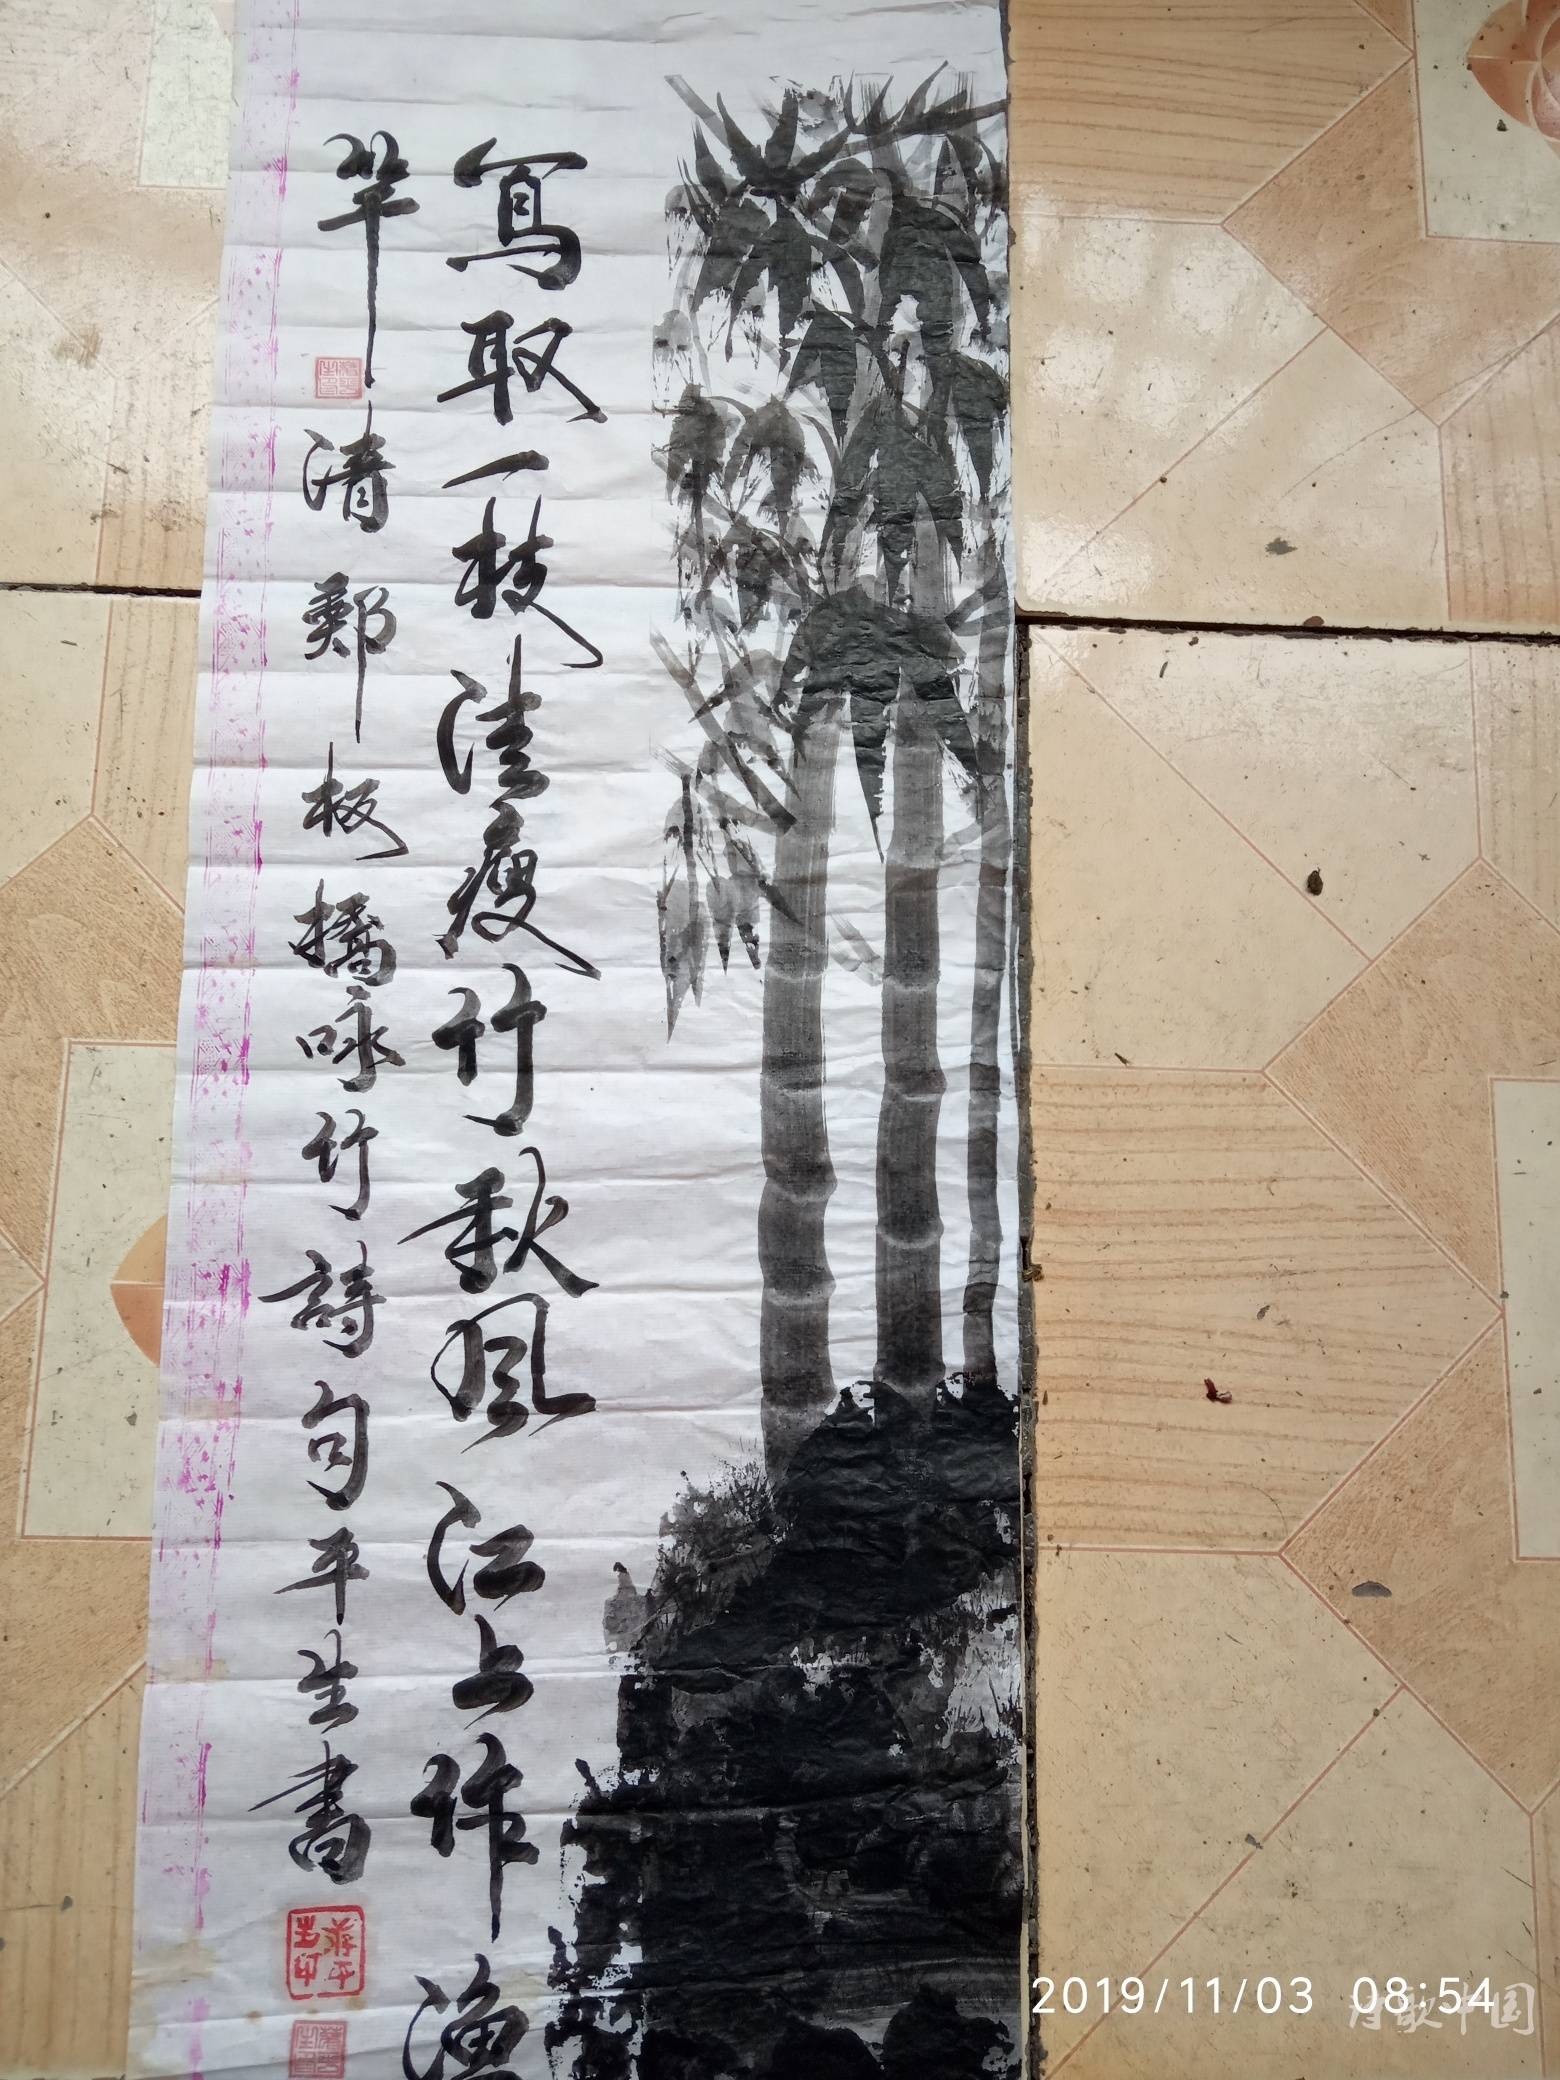 寫取一枝清瘦竹秋風江上作漁
竿清鄭板橋咏竹詩句平生書
2019/11/03 08:54
诗歌中国